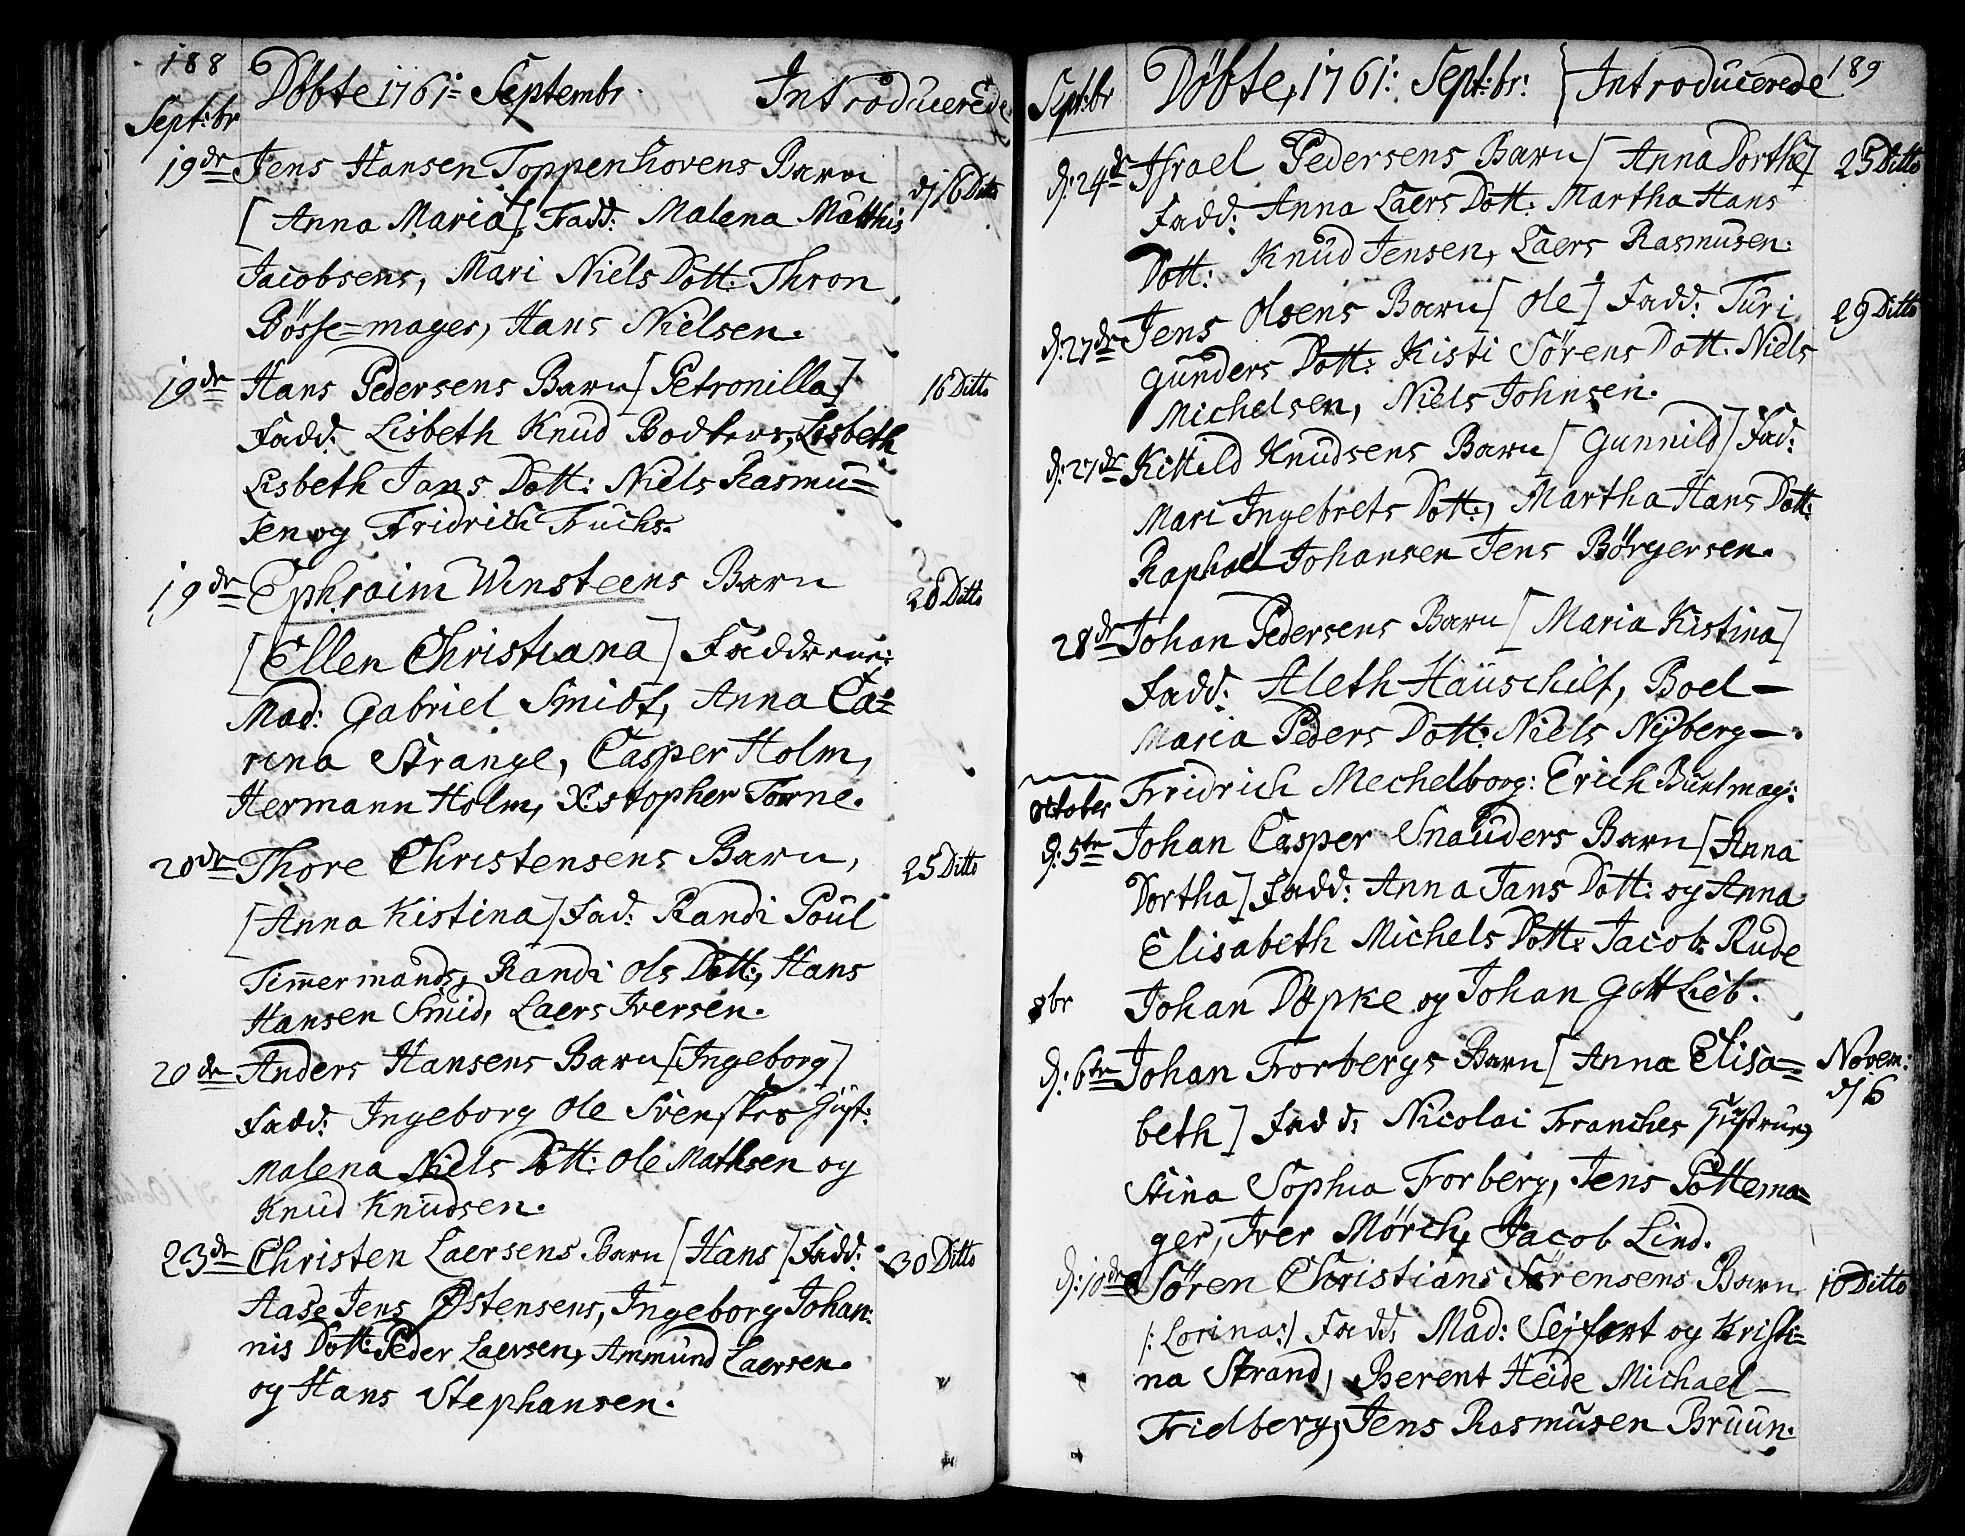 188
Döbte 1761: Septembr. Introducerede
Sept:br
19de Jens Hansen Toppenhovens Barn
[Anna Maria] Fadd: Malena Matthis d/16 Ditto
Jacobsens, Mari Niels Dott: Thron
Bösse=mager, Hans Nielsen.
19de Hans Pedersens Barn [Petronilla] 16 Ditto
Fadd: Lisbeth Knud Bodkers, Lisbeth
Lisbeth Jans Dott: Niels Rasmu=
sen og Fridrich Fuchs.
19de Ephraim Wensteens Barn 28 Ditto
[Ellen Christiana] Fadderne:
Mad: Gabriel Smidt, Anna Ca=
rina Strange, Casper Holm,
Hermann Holm, Xstopher Torne.
20de Thore Christensens Barn, 25 Ditto
[Anna Kistina] Fad: Randi Poul
Timmermands, Randi Ols Dott:, Hans
Hansen Smid, Laers Iversen.
20de Anders Hansens Barn [Ingeborg]
Fadd: Ingeborg Ole Svenskes
Malena Niels Dott: Ole Mathsen og
Knud Knudsen.
23de Christen Laersens Barn [Hans] Fadd: 30 Ditto
Aase Jens Østensens, Ingeborg Johan:
nis Dott: Peder Laersen, Ammund Laersen.
og Hans Stephansen.
189
Sept:br Döbte, 1761: Sept:br: Introducerede
d: 24de Israel Pedersens Barn [Anna Dorthe] 25 Ditto
Fadd: Anna Laers Dott: Martha Hans
Dott: Knud Jensen, Laers Rasmusen.
d: 27de Jens Olsens Barn [Ole] Fadd: Turi 29 Ditto
Gunders Dott: Kisti Sörens Dott: Niels
Michelsen, Niels Johnsen.
d: 27de Kittild Knudsens Barn [Gunnild] Fad:
Mari Ingebrets Dott:, Martha Hans Dott:
Raphael Johansen Jens Börgersen.
28de Johan Pedersens Barn [Maria Kistina]
Fadd: Aleth Hauschilt, Boel –
Maria Peders Dott: Niels Nyberg –.
Fridrich Mechelborg: Erich Buntmag:
October
d: 5te Johan Casper Snauders Barn [Anna
Dortha] Fadd: Anna Jans Dott: og Anna
Elisabeth Michels Dott: Jacob Rude
8br Johan Döpke og Johan Gottlieb.
d: 6te Johan Forbergs Barn [Anna Elisa= Novem:
d/6
beth] Fadd: Nicolai Franches
Stina Sophia Forberg, Jens Pottema=
ger, Iver Mörch, Jacob Lind.
d: 10de Sören Christians Sörensens Barn 10 Ditto
/: Lorina:/ Fadd: Mad: Sejfart og Kristi=
na Strand, Berent Heide Michael –
Fridberg, Jens Rasmusen Bruun.